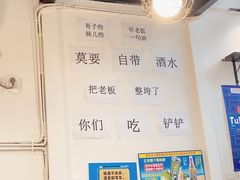 哥子些
妹儿些
听老板
一句劝
莫要 自带 酒水
把老板 整垮了
你们 吃 铲铲